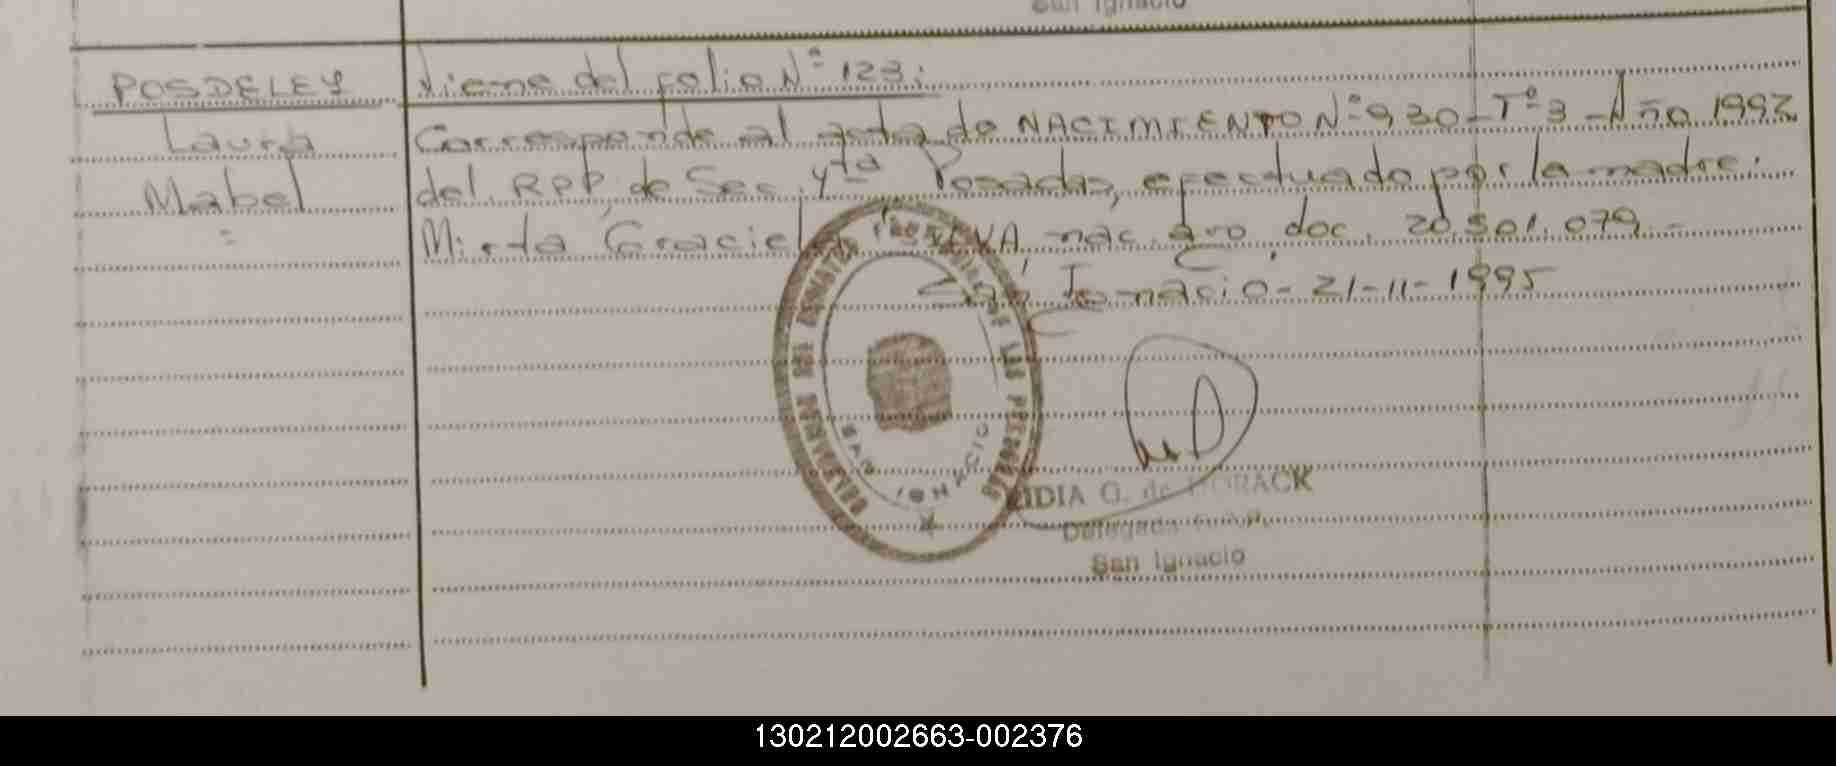 San Ignacio
POSDELEY
Laura
Mabel
:
Viene del folio Nº 123:
Corresponde al acta de NACIMIENTO Nº 930 - Tº 3 - Año 1992
del RPP, de Sec. 4ta Posadas, efectuado por la madre:
Mirta Graciela nac. arg. doc. 20.501.079.-
San Ignacio - 21-11-1995
DELEGACION DEL REGISTRO PROVINCIAL DE LAS PERSONAS
SAN IGNACIO
LIDIA G. de HORACK
Delegada R.P.P.
San Ignacio
130212002663-002376